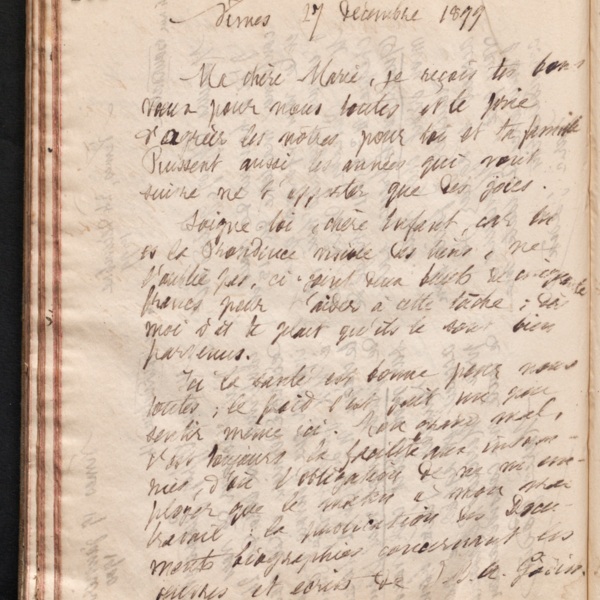 Nimes 27 Décembre 1899
Ma chère Marie, je reçois tes bons
vœux pour nous toutes et te prie
d'agréer les nôtres pour toi et ta famille
Puissent aussi les années qui vont
suivre ne t'apporter que des joies.
Soigne toi, chère Enfant, car tu
es la Providence des tiens, ne
l'oublie pas, ci-joint deux billets de cinquante
francs pour t'aider à cette tâche ; dis
moi s'il te plait qu'ils te sont bien
parvenus.
Ici la santé est bonne pour nous
toutes, le froid s'est fait un peu
sentir même ici. Mon grand mal,
c'est toujours la facilité aux insom-
nies, d'où l'obligation de ne m'em-
ployer que le matin à mon
travail : la publication des Docu-
ments biographiques concernant les
œuvres et écrits de J. B. A. Godin.